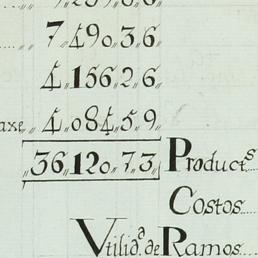 7„490„3„6„
4„156„2„6„
axe„ 4„084„5„9„
36„120„7„3„ Product.s
Costos
Vtilid.a de Ramos